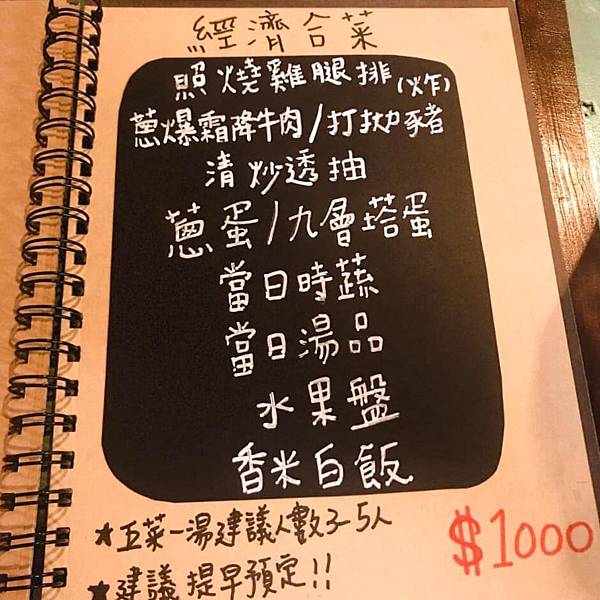 經濟合菜
照燒雞腿排(炸)
蔥爆霜降牛肉/打拋豬
清炒透抽
蔥蛋/九層塔蛋
當日時蔬
當日湯品
水果盤
香米白飯
★五菜一湯建議人數3-5人
$1000
★建議提早預定!!